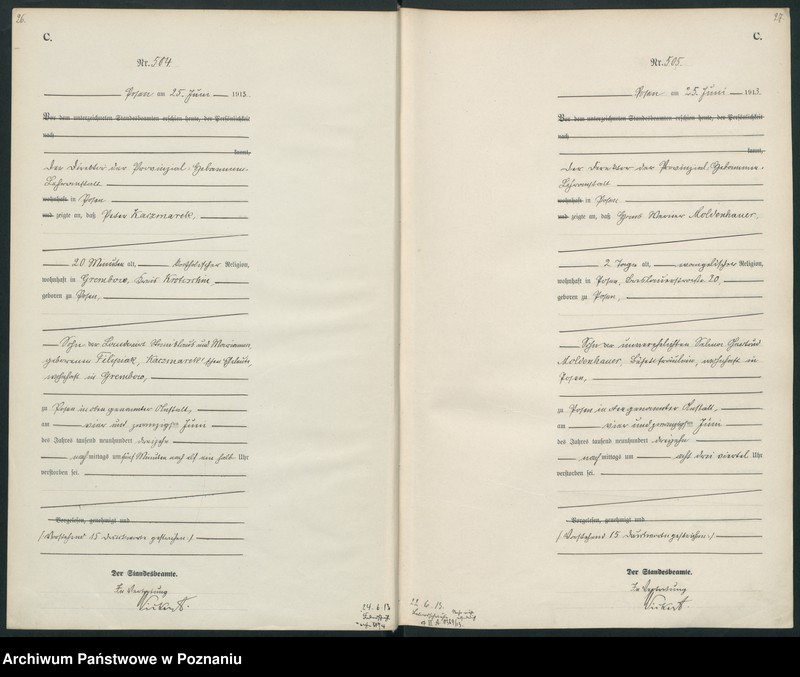 26.
C.
Nr. 504
Posen am 25. Juni 1913.
Vor dem unterzeichneten Standesbeamten erschien heute, der Persönlichkeit
nach
kannt,
Der Direktor der Provinzial-Hebammen-
Lehranstalt
wohnhaft in Posen
und zeigte an, daß Peter Kaczmarek,
20 Minuten alt, katholischer Religion,
wohnhaft in Grembow, Kreis Krotoschin,
geboren zu Posen,
Sohn der Landwirt Stanislaus und Marianna
geborenen Filipiak, Kaczmarek'schen Eheleute,
wohnhaft in Grembow,
zu Posen in oben genannter Anstalt,
am vier und zwanzigsten Juni
des Jahres tausend neunhundert dreizehn
nachmittags um fünf Minuten nach elf ein halb Uhr
verstorben sei.
Vorgelesen, genehmigt und
(Vorstehend 15 Druckworte gestrichen.)
Der Standesbeamte.
In Vertretung
24.6.13
27.
C.
Nr. 505.
Posen am 25. Juni 1913.
Vor dem unterzeichneten Standesbeamten erschien heute, der Persönlichkeit
nach
kannt,
Der Direktor der Provinzial-Hebammen-
Lehranstalt
wohnhaft in Posen
und zeigte an, daß Werner Moldenhauer,
2 Tage alt, evangelischer Religion,
wohnhaft in Posen, Breslauerstraße 20,
geboren zu Posen,
Sohn der unverehelichten Selma Gertrud
Moldenhauer, Büfettfräulein, wohnhaft in
Posen,
zu Posen in oben genannter Anstalt,
am vier und zwanzigsten Juni
des Jahres tausend neunhundert dreizehn
nachmittags um acht drei viertel Uhr
verstorben sei.
Vorgelesen, genehmigt und
(Vorstehend 15 Druckworte gestrichen.)
Der Standesbeamte.
In Vertretung
22.6.13.
Archiwum Państwowe w Poznaniu